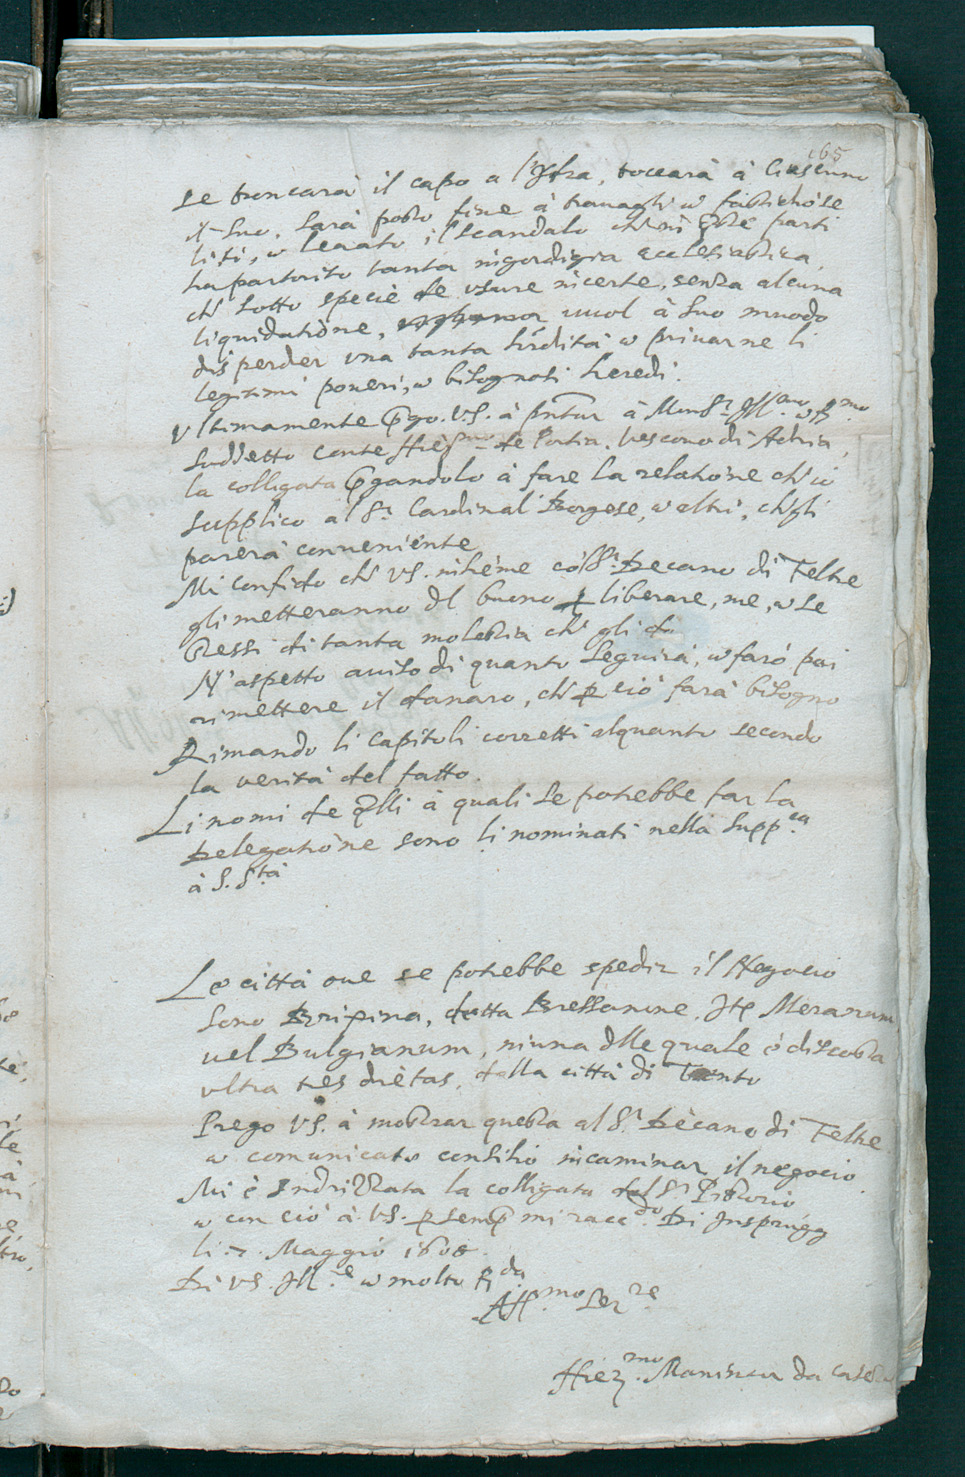 165
se troncarà il capo a l'Hydra, toccarà à Ciascuno
il suo, sarà posto fine à travagli et fastidiose
liti, et levato il scandalo ch' in q.ste parti
ha partorito tanta ingordigia ecclesiastica,
ch' sotto specie de usure incerte, senza alcuna
liquidatione, vuol à suo muodo
disperder una tanta heredità et privarne li
legitimi poveri, et bisognosi heredi.
Ultimamente p.go V.S. à p.ntar à Mons.r Ill.mo et R.mo
suddetto Conte Hier.mo de Portia, Vescovo di Adria,
la colligata p.gandolo à fare la relatione ch' io
supplico al S.r Cardinal Borgese, et altri, ch' gli
parerà conveniente
Mi confido ch' V.S. insieme co'l S.r Decano di Feltre
gli metteranno del buono p liberare, me, et se
stessi di tanta molestia ch' gli do
N'aspetto aviso di quanto seguirà, et farò poi
rimettere il danaro, ch' p ciò farà bisogno
Rimando li capitoli corretti alquanto secondo
la verità del fatto.
Li nomi de q.lli à quali se potrebbe far la
Delegatione sono li nominati nella Supp.ca
à S. S.tà
Le città ove se potrebbe spedir il Negocio
sono Brixina, detta Bressanone, Ite Meranum
vel Bulgianum, niuna d.lle quale è discosta
ultra tres dietas, dalla città di Trento
Prego V.S. à mostrar questa al S.r Decano di Feltre
et comunicato consilio incaminar il negocio.
Mi è Indrizzata la colligata dal S.r Pistorio
et con ciò à V.S. p semp mi racc.do Di Insprugg
li 7. Maggio 1608.
Di V.S. Ill.e et molto R.da
Aff.mo Ser.re
Hier.mo Manincor da Casez